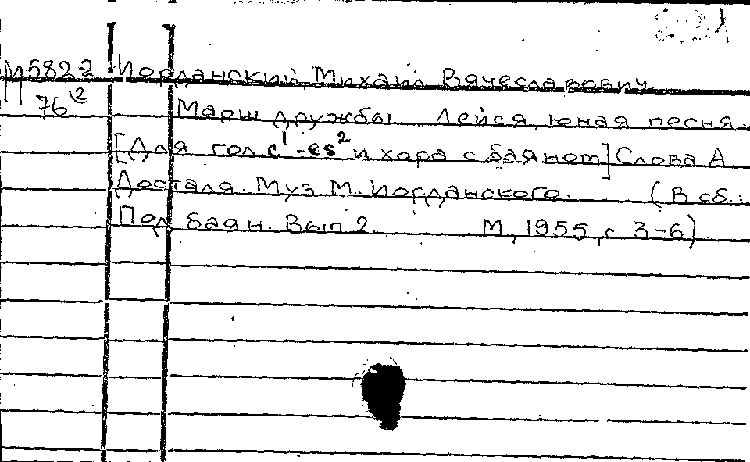 М5822 Иорданский, Михаил Вячеславович
П 76² Марш дружбы. Лейся, юная песня.
[Для гол. c¹-es² и хора с баяном] Слова А.
Досталя. Муз. М. Иорданского. (В сб.:
Под баян. Вып. 2. М., 1955, с. 3-6)